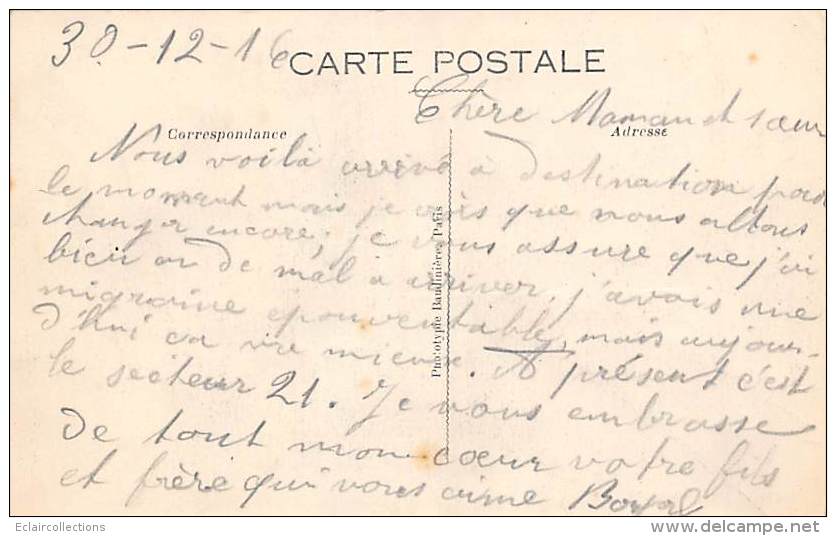 30-12-16
CARTE POSTALE
Chère Maman et sœur
Correspondance
Adresse
Nous voilà arrivé à destination pour
le moment mais je crois que nous allons
changer encore, je vous assure que j'ai
bien eu de mal à arriver, j'avais une
migraine épouventable, mais aujour-
d'hui ca va mieux. A présent c'est
le secteur 21. Je vous embrasse
de tout mon cœur votre fils
et frère qui vous aime
Phototypie Baudinière, Paris
Eclaircollections
delcampe.net